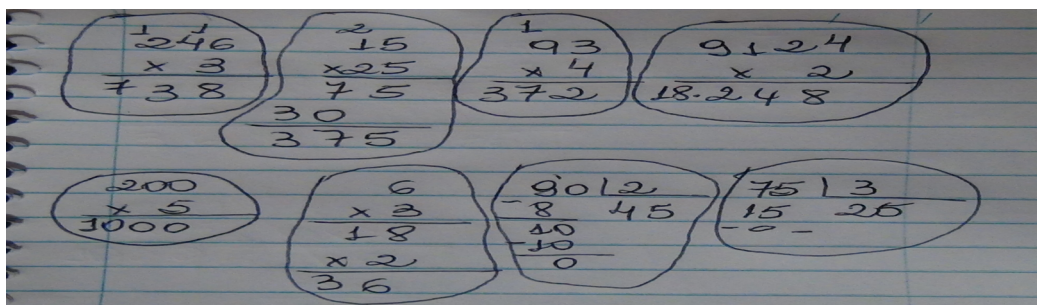 1 1
246
x 3
738
2
15
x25
75
30
375
1
93
x 4
372
9124
x 2
18.248
200
x 5
1000
6
x 3
18
x 2
36
90 | 2
- 8 45
10
-10
0
75 | 3
15 25
- 0 -